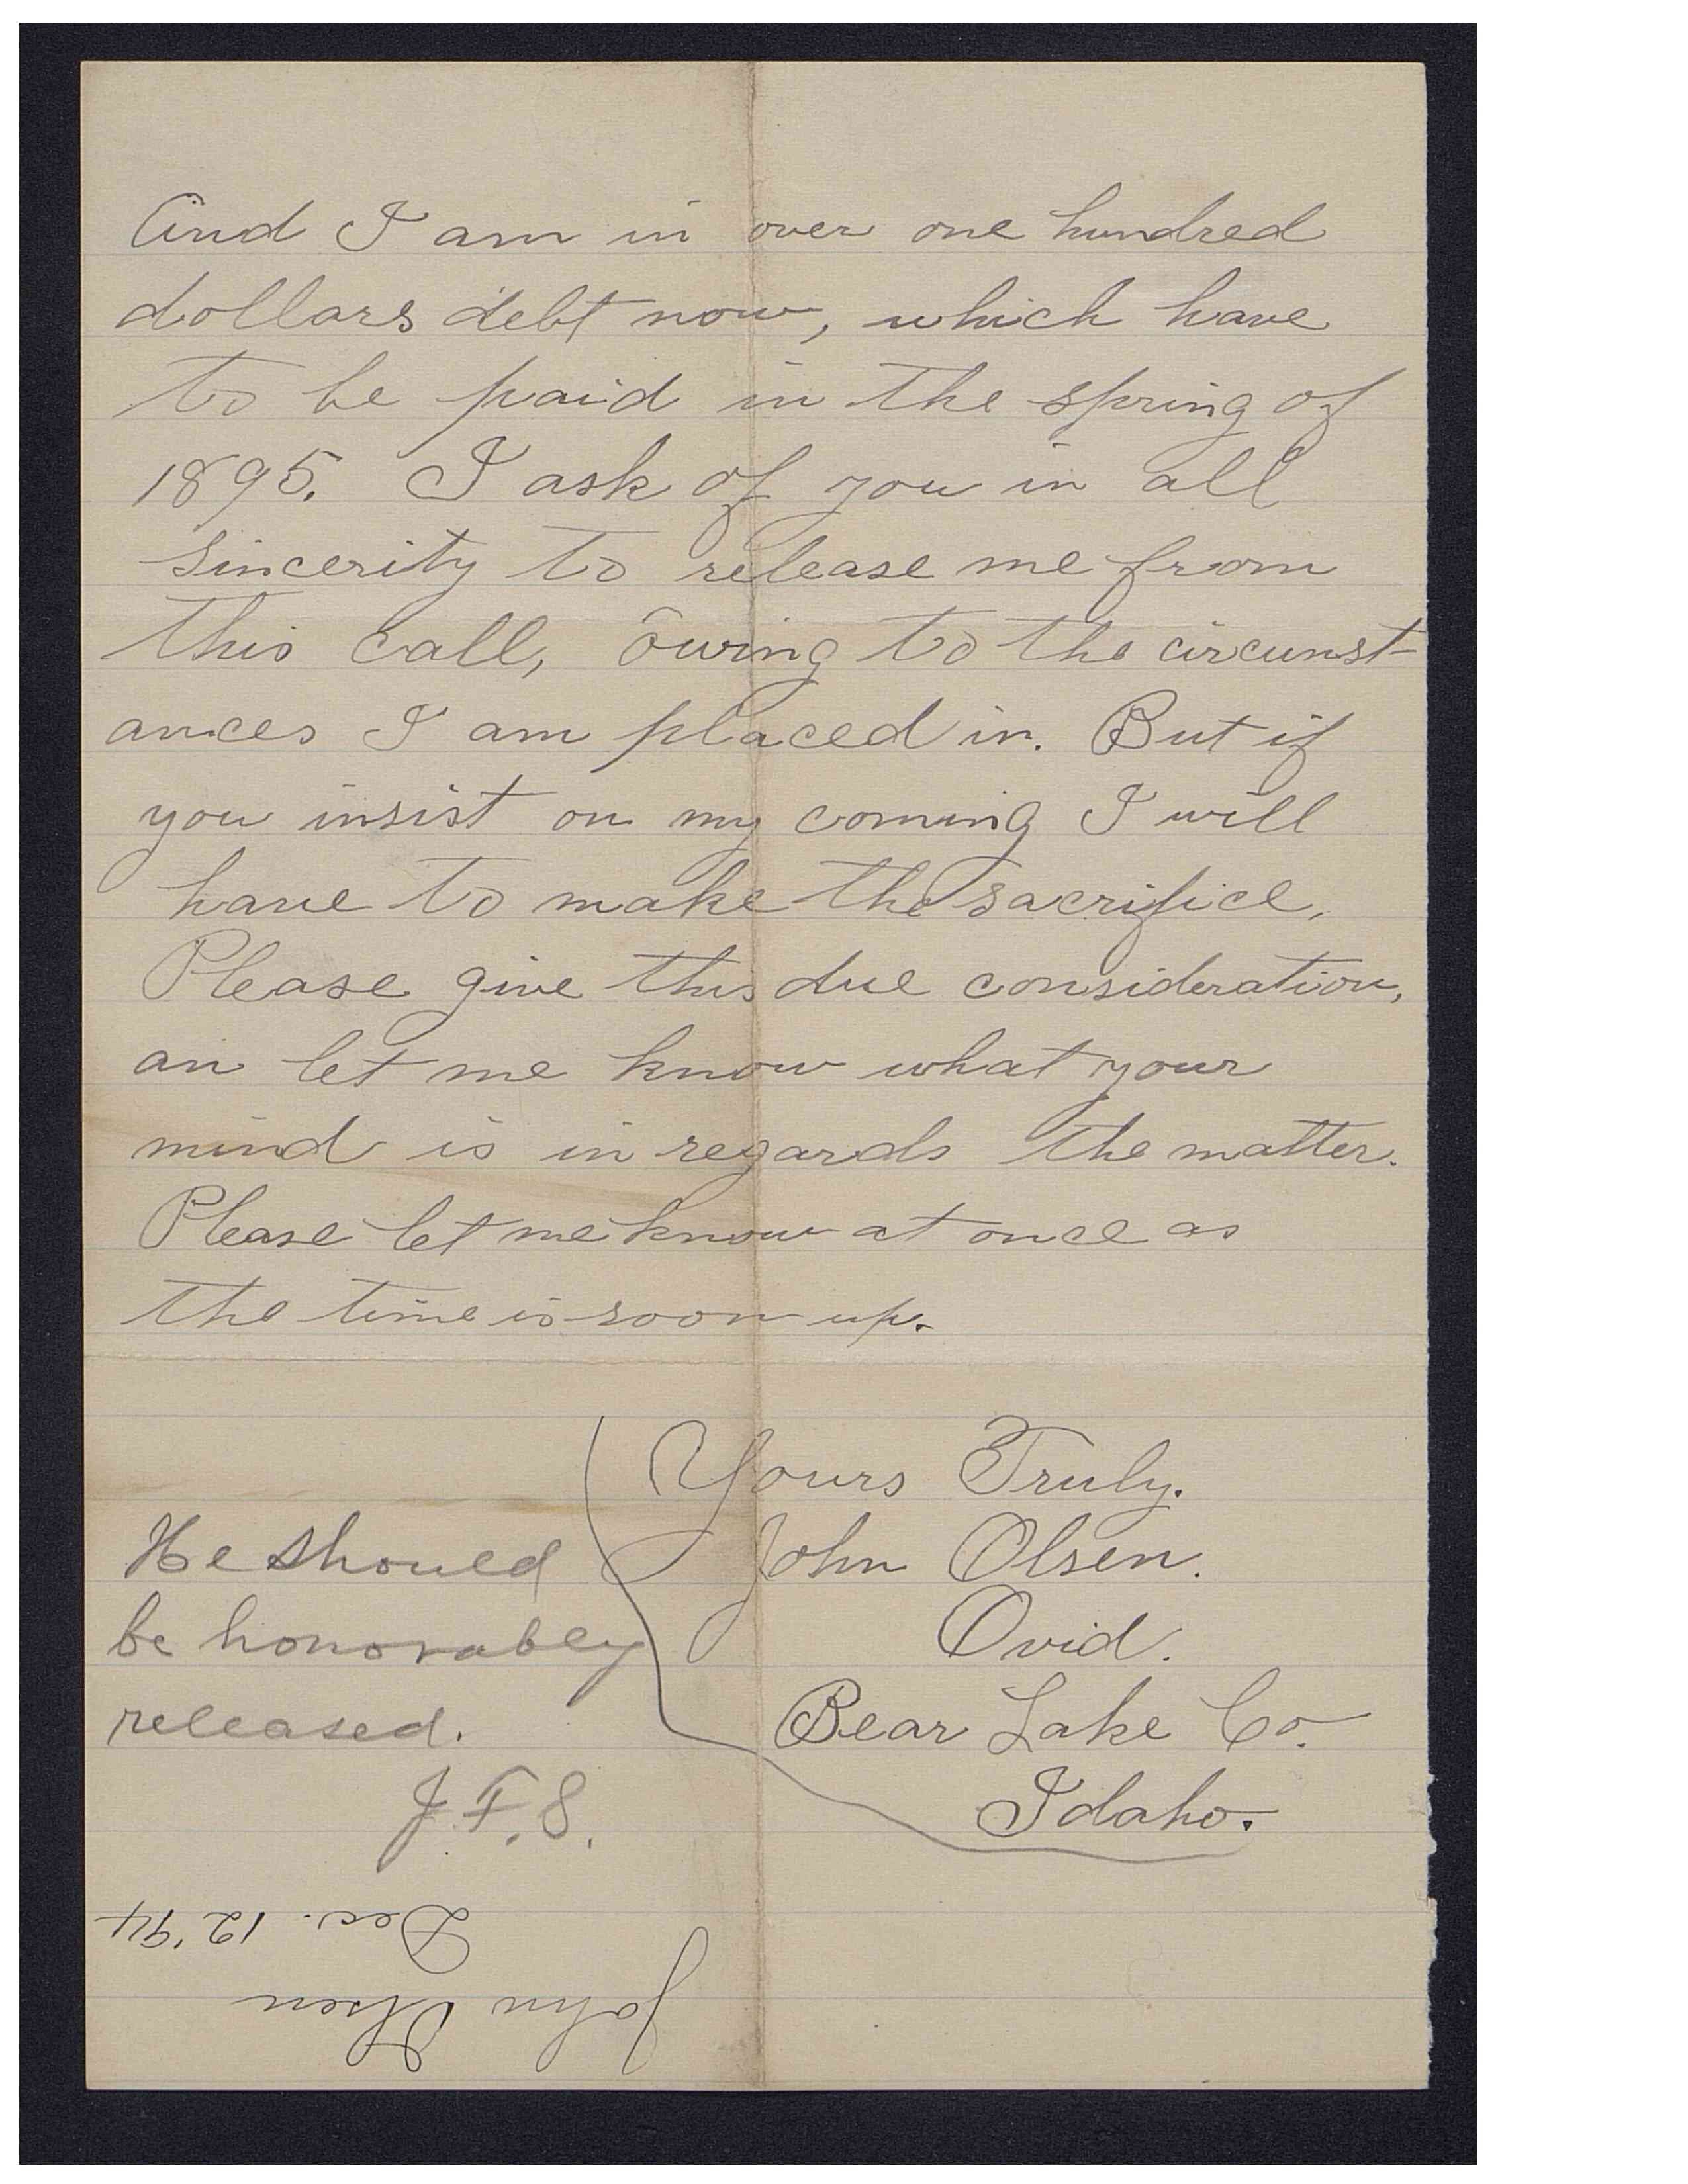 And I am in over one hundred
dollars debt now, which have
to be paid in the spring of
1895. I ask of you in all
sincerity to release me from
this call, owing to the circumst-
ances I am placed in. But if
you insist on my coming I will
have to make the sacrifice.
Please give this due consideration,
an let me know what your
mind is in regards the matter.
Please let me know at once as
the time is soon up.
Yours Truly.
John Olsen.
Ovid.
Bear Lake Co.
Idaho.
He should
be honorabley
released.
J. F. S.
John Olsen
Dec. 12 '94